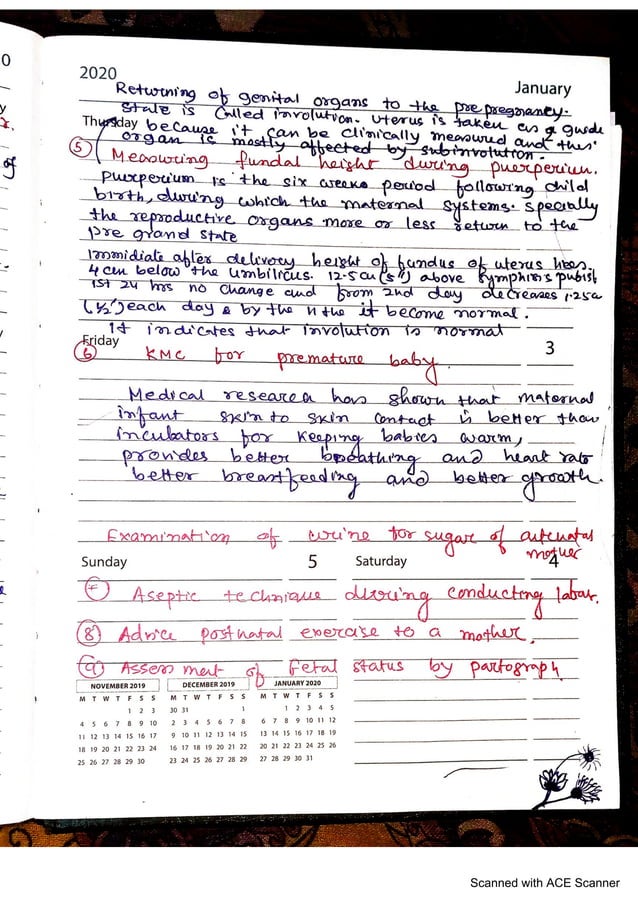 2020
January
Returning of genital organs to the pre pregnancy.
State is Called involution. Uterus is taken as a guide
Thursday
because it can be clinically measured and this
organ is mostly affected by subinvolution.
5 Measuring fundal height during puerperium.
Puerperium is the six weeks period following child
birth, during which the maternal systems. specially
the reproductive organs more or less return to the
pre grand state
Immidiate after delivery height of fundus of uterus lies.
4 cm below the umbilicus. 12.5 cm (5") above symphisis pubis
1st 24 hrs no change and from 2nd day decreases 1.25cm
(½") each day & by the 11 the it become normal.
It indicates that involution is normal
Friday
3
6 KMC for premature baby.
Medical research has shown that maternal
infant skin to skin contact is better than
incubators for keeping babies warm,
provides better breathing and heart rate
better breastfeeding and better growth.
Examination of urine for sugar of antenatal
mother
Sunday 5 Saturday 4
7 Aseptic technique during conducting labar.
8 Advice postnatal exercise to a mother.
9 Assesment of Fetal status by partograph
NOVEMBER 2019 DECEMBER 2019 JANUARY 2020
M T W T F S S M T W T F S S M T W T F S S
1 2 3 30 31 1 1 2 3 4 5
4 5 6 7 8 9 10 2 3 4 5 6 7 8 6 7 8 9 10 11 12
11 12 13 14 15 16 17 9 10 11 12 13 14 15 13 14 15 16 17 18 19
18 19 20 21 22 23 24 16 17 18 19 20 21 22 20 21 22 23 24 25 26
25 26 27 28 29 30 23 24 25 26 27 28 29 27 28 29 30 31
Scanned with ACE Scanner